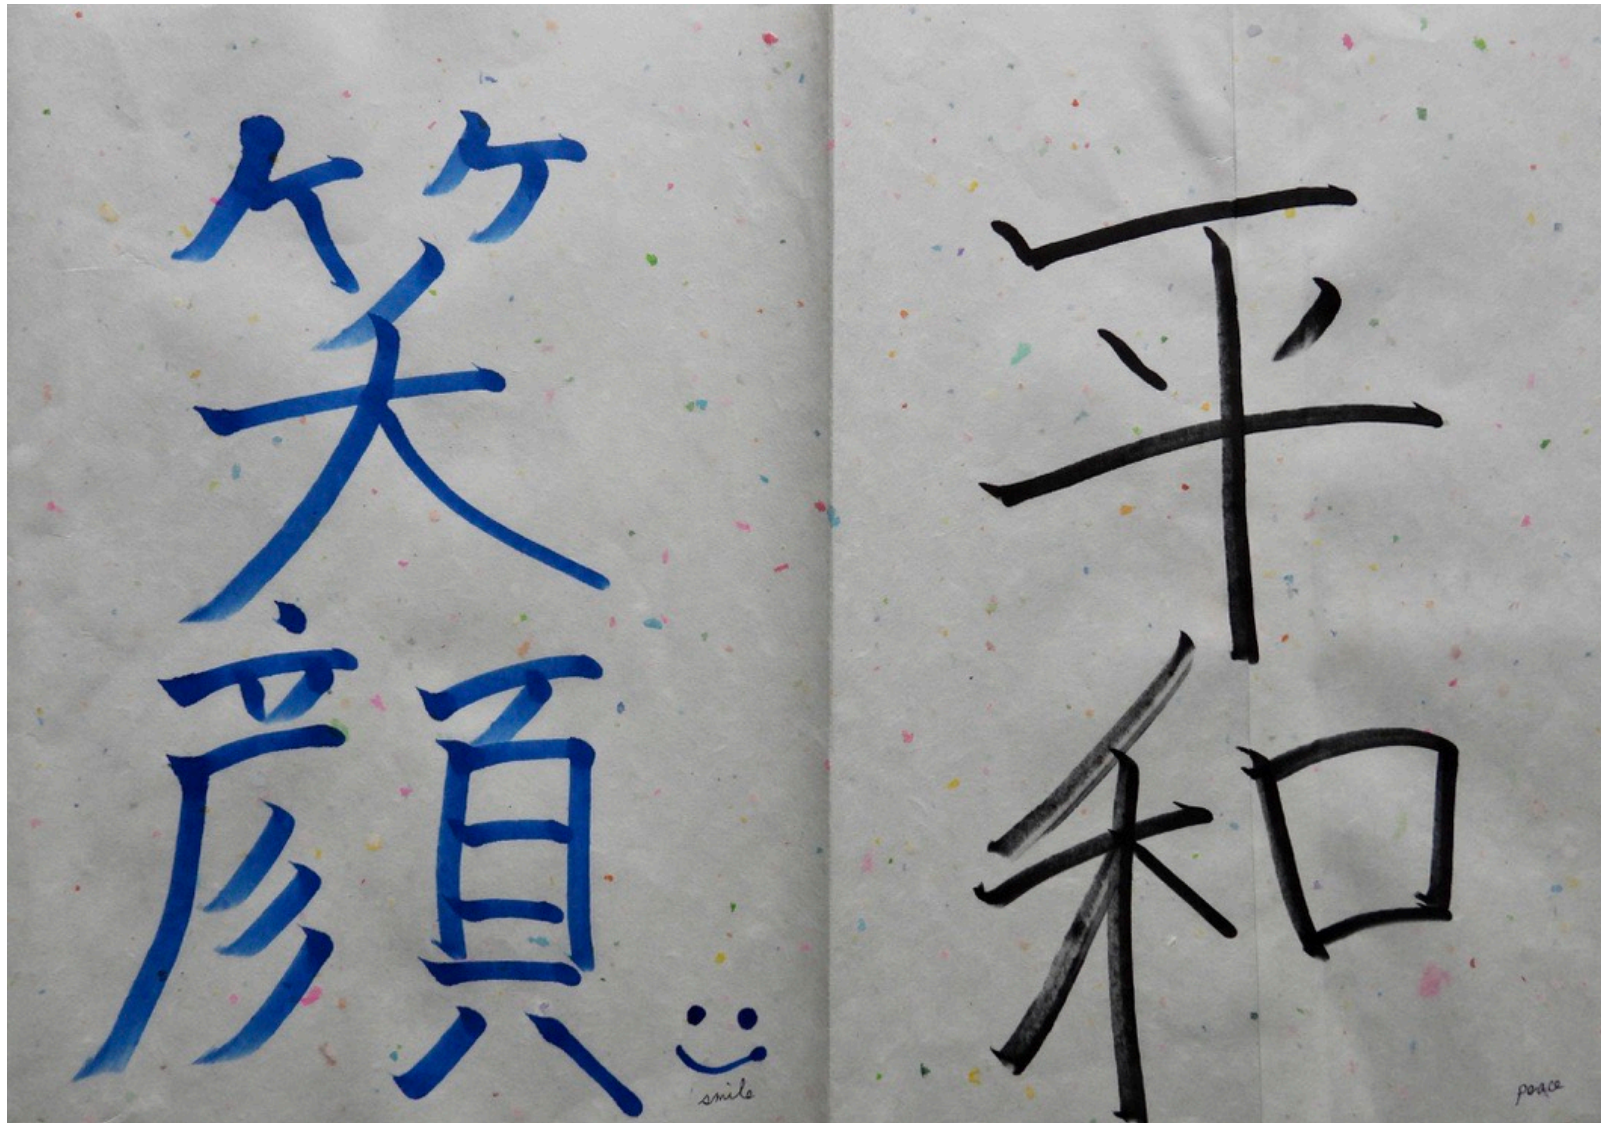 笑顔
smile
平和
peace